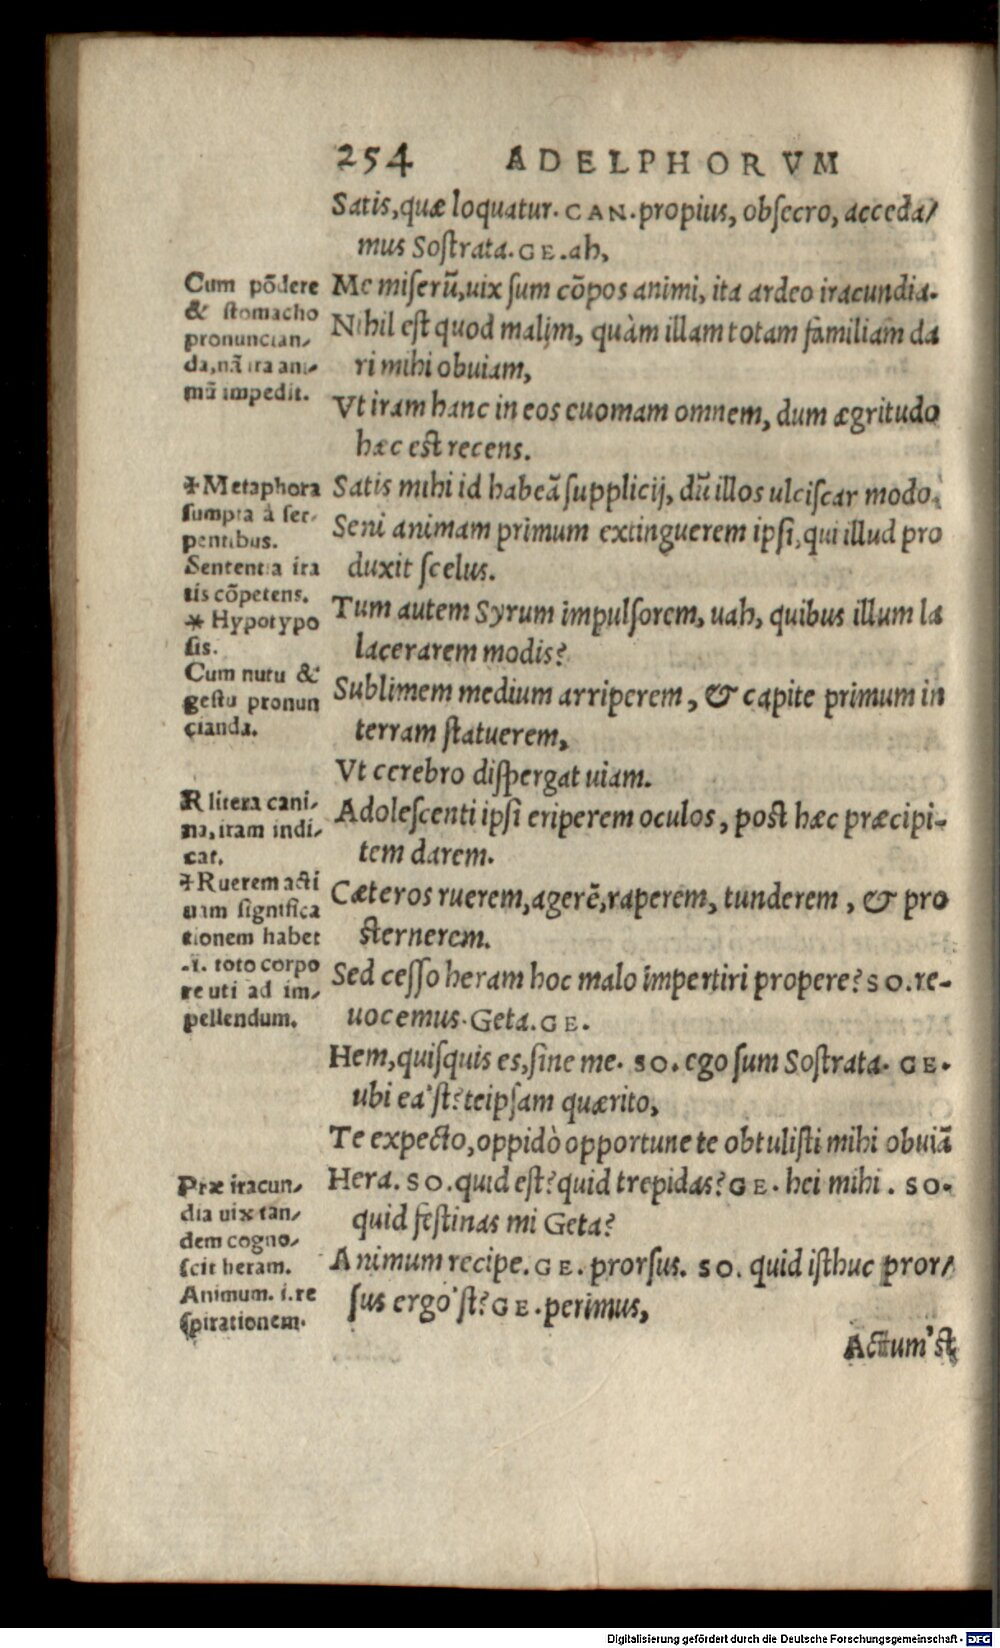 254 ADELPHORVM
Satis,quæ loquatur. CAN. propius, obſecro, acceda/
mus Soſtrata. GE. ah,
Me miſerũ,uix ſum cõpos animi, ita ardeo iracundia.
Nihil eſt quod malim, quàm illam totam familiam da
ri mihi obuiam,
Vt iram hanc in eos euomam omnem, dum ægritudo
hæc eſt recens.
Satis mihi id habeã ſupplicij, dũ illos ulciſcar modo.
Seni animam primum extinguerem ipſi, qui illud pro
duxit ſcelus.
Tum autem Syrum impulſorem, uah, quibus illum la
lacerarem modis?
Sublimem medium arriperem, & capite primum in
terram ſtatuerem,
Vt cerebro diſpergat uiam.
Adoleſcenti ipſi eriperem oculos, poſt hæc præcipi-
tem darem.
Cæteros ruerem, agerẽ, raperem, tunderem, & pro
ſternerem.
Sed ceſſo heram hoc malo impertiri propere? SO. re-
uocemus. Geta. GE.
Hem, quiſquis es, ſine me. SO. ego ſum Soſtrata. GE.
ubi ea'ſt? teipſam quærito,
Te expecto, oppidò opportune te obtuliſti mihi obuiã
Hera. SO. quid eſt? quid trepidas? GE. hei mihi. SO.
quid feſtinas mi Geta?
Animum recipe. GE. prorſus. SO. quid iſthuc pror/
ſus ergo'ſt? GE. perimus,
Actum'ſt
Cum põdere
& ſtomacho
pronuncian/
da, nã ira ani-
mũ impedit.
✢Metaphora
ſumpta à ſer-
pentibus.
Sententia ira
tis cõpetens.
* Hypotypo
ſis.
Cum nutu &
geſtu pronun
cianda.
R litera cani/
na, iram indi/
cat.
✢Ruerem acti
uam ſignifica
tionem habet
.i. toto corpo
re uti ad im/
pellendum.
Præ iracun/
dia uix tan/
dem cogno/
ſcit heram.
Animum. i. re
ſpirationem.
Digitalisierung gefördert durch die Deutsche Forschungsgemeinschaft - DFG